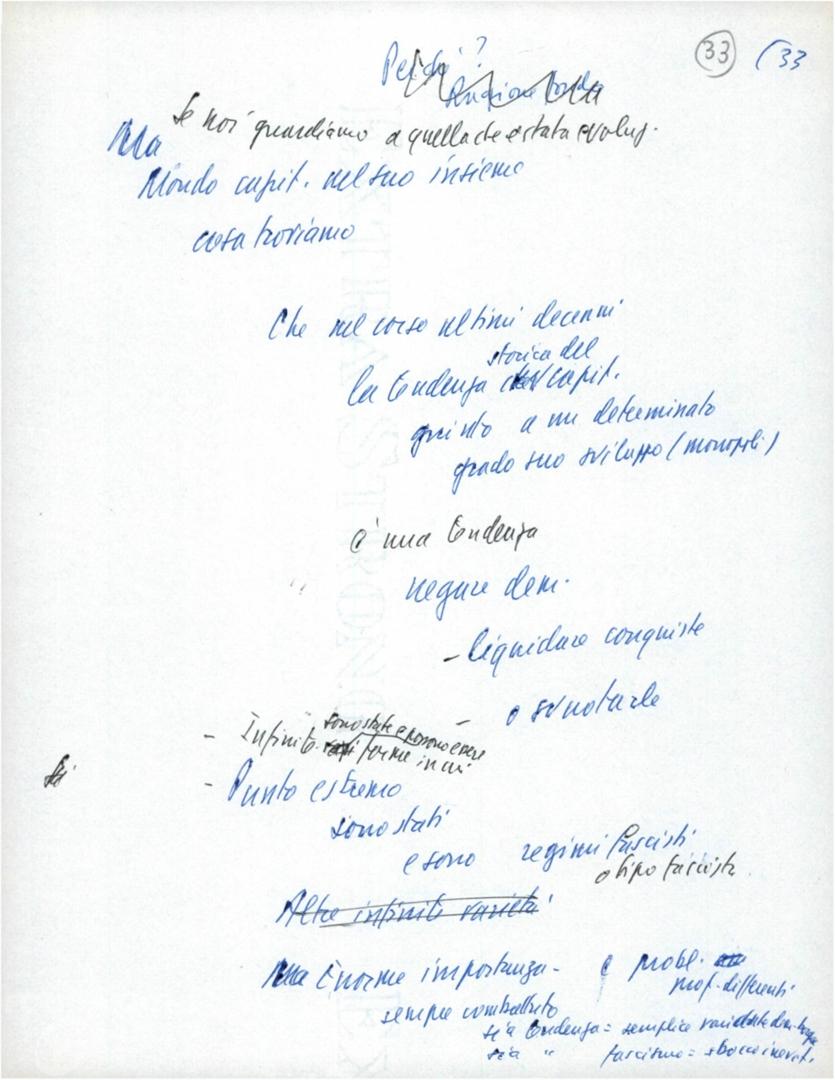 33 (33
Perché?
Se noi guardiamo a quella che è stata evoluz.
Ma
Mondo capit. nel suo insieme
cosa troviamo
Che nel corso ultimi decenni
storica del
la tendenza capit.
giunto a un determinato
grado suo sviluppo (monopoli)
è una tendenza
negare dem.
- liquidare conquiste
- o svuotarle
sono state e possono essere
- Infinite forme in cui
- Punto estremo
sono stati
e sono regimi fascisti
o tipo fascista
Altre infinite varietà
Ma Enorme importanza - è probl.
prof. differenti
sempre combattuto
sia tendenza = semplice
sia " fascismo = sbocco inevit.